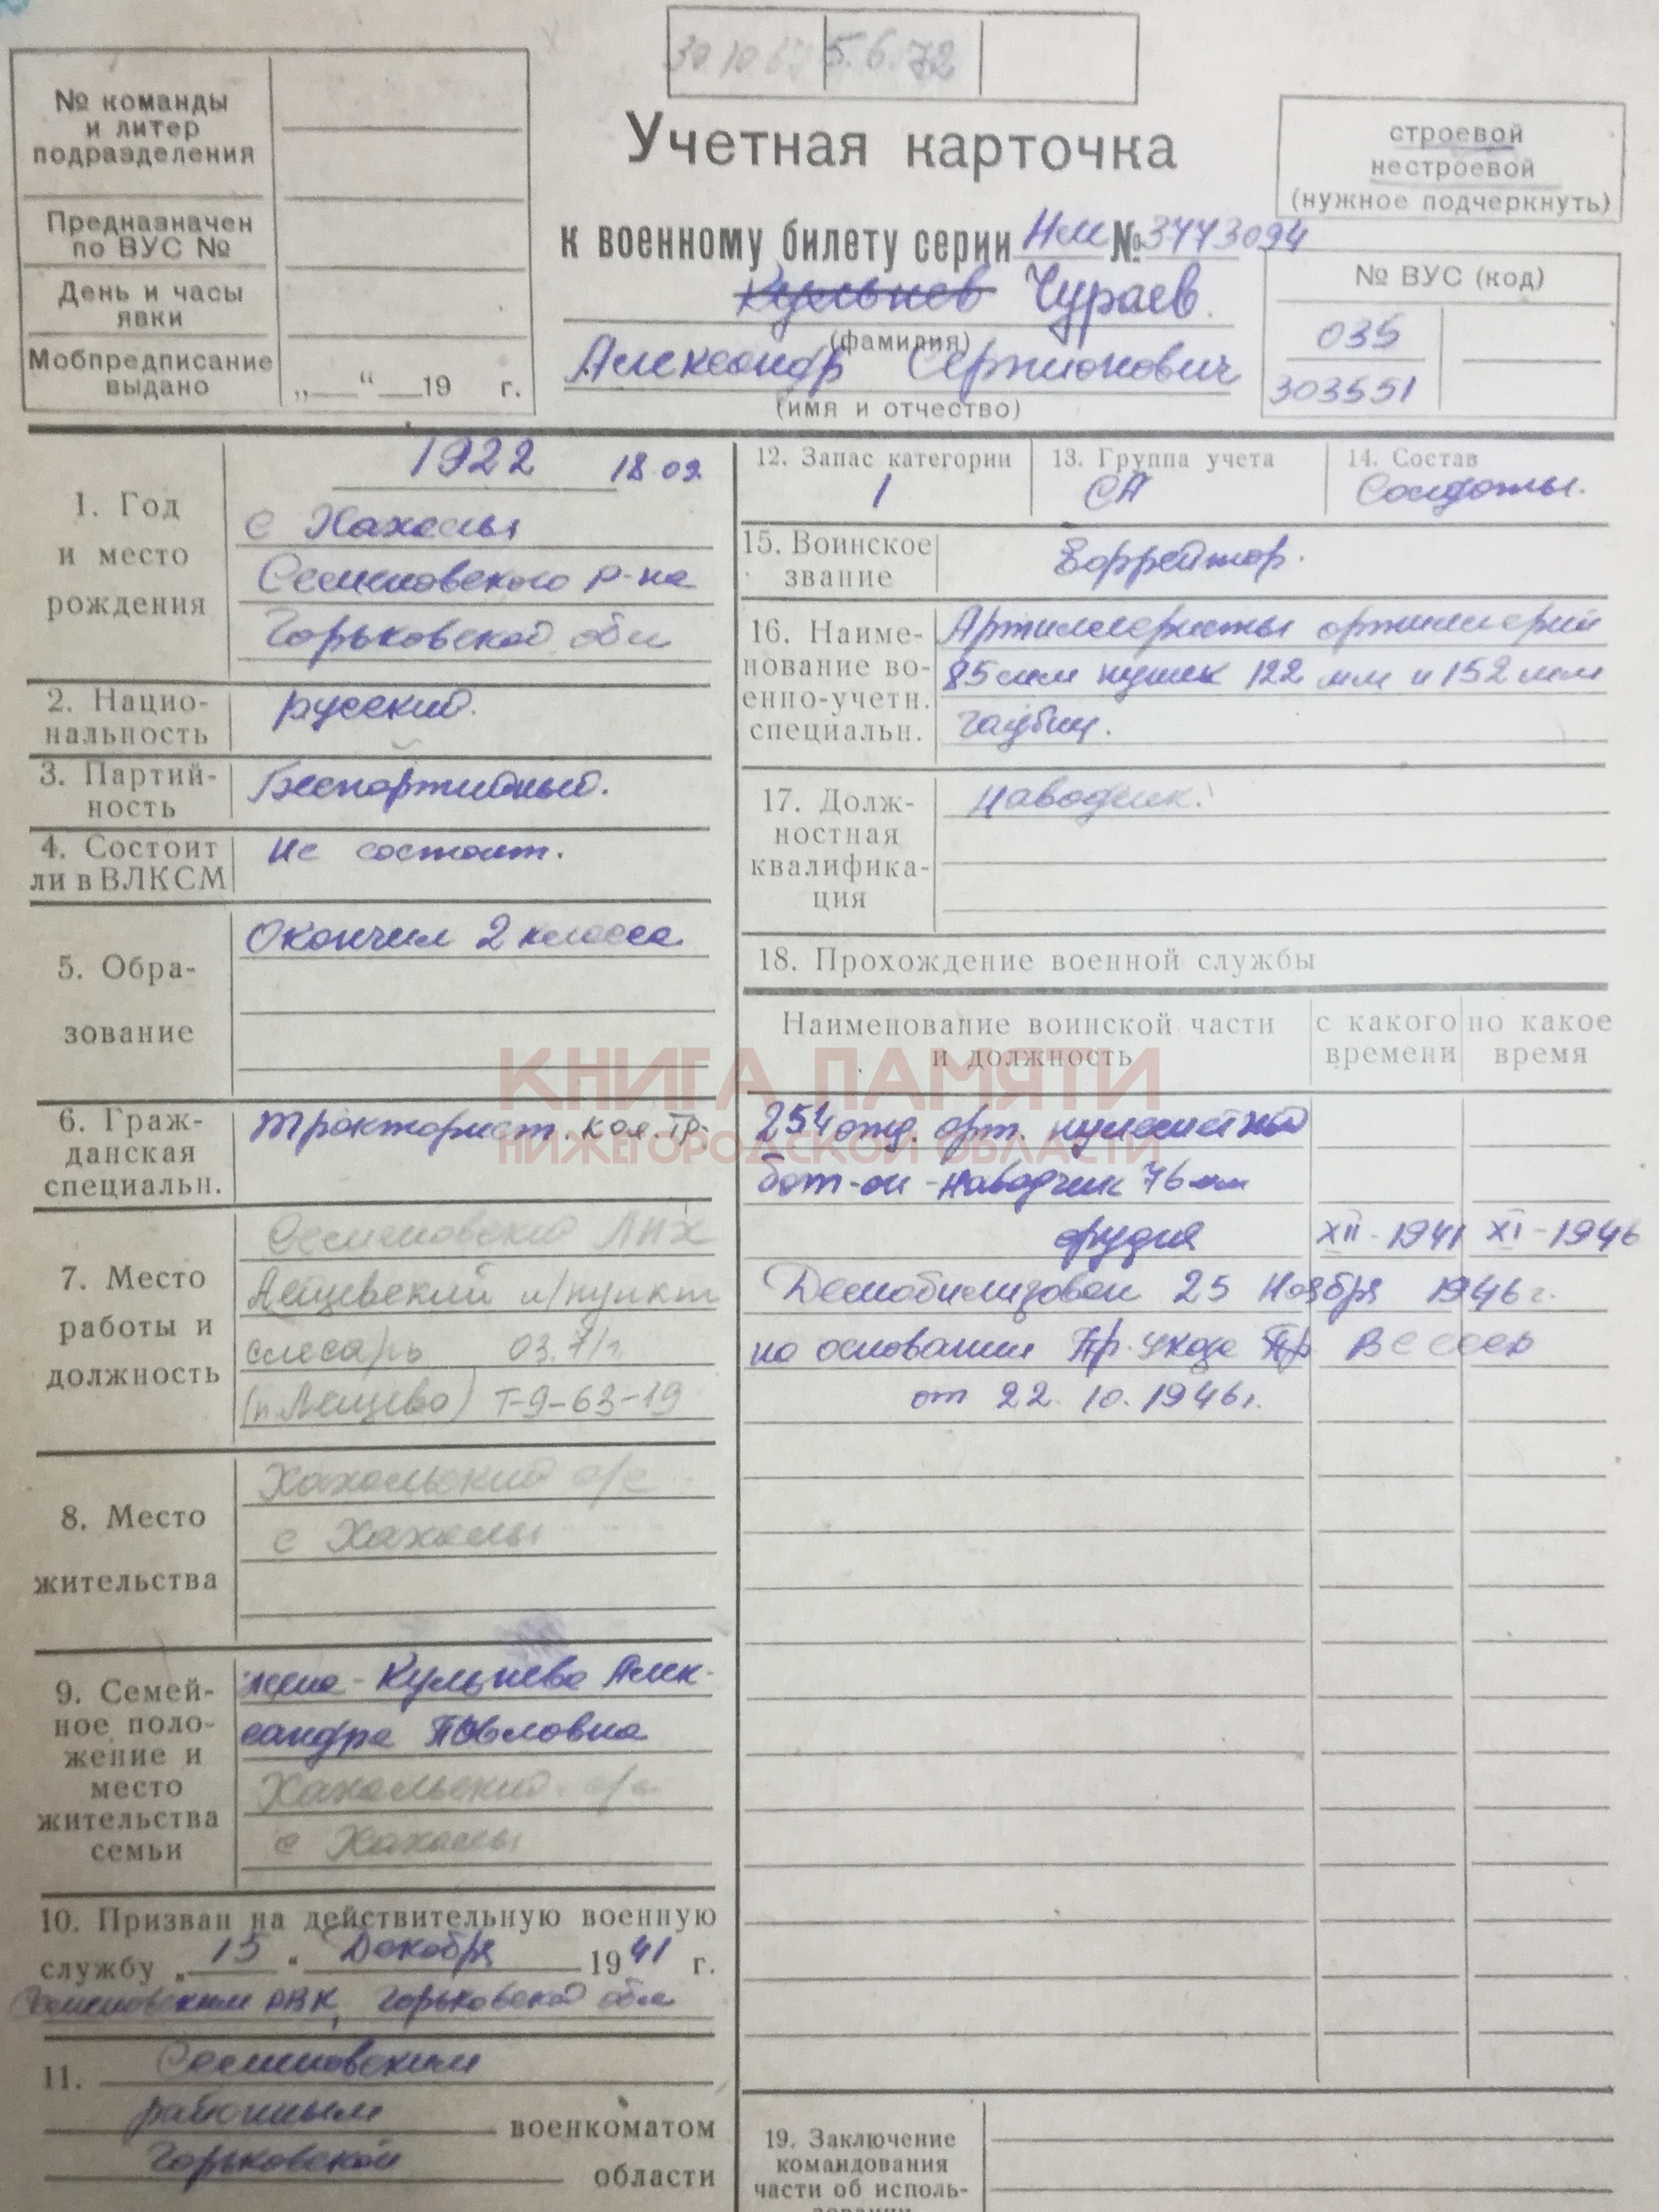 30.10.67 5.6.72
№ команды
и литер
подразделения
Предназначен
по ВУС №
День и часы
явки
Мобпредписание
выдано
„__“ __19 г.
Учетная карточка
к военному билету серии НМ № 3773094
Кульнев Чураев
(фамилия)
Александр Серпионович
(имя и отчество)
строевой
нестроевой
(нужное подчеркнуть)
№ ВУС (код)
035
303551
1. Год
и место
рождения
1922 18.02
с Хахалы
Семеновского р-на
Горьковской обл
2. Нацио-
нальность
русский.
3. Партий-
ность
Беспартийный.
4. Состоит
ли в ВЛКСМ
Не состоит.
5. Обра-
зование
Окончил 2 класса
6. Граж-
данская
специальн.
тракторист. кол. тр.
7. Место
работы и
должность
Семеновский ЛПХ
Лещевский м/пункт
слесарь 03.71г.
(п. Лещево) т-9-63-19
8. Место
жительства
Хахальский с/с
с Хахалы
9. Семей-
ное поло-
жение и
место
жительства
семьи
жена - Кульнева Алек-
сандра Павловна
Хахальский с/с
с Хахалы
10. Призван на действительную военную
службу „15“ Декабря 1941 г.
Семеновским РВК, Горьковской обл
11. Семеновским
районным военкоматом
Горьковской области
12. Запас категории
1
13. Группа учета
СА
14. Состав
Солдаты.
15. Воинское
звание
Ефрейтор.
16. Наиме-
нование во-
енно-учетн.
специальн.
Артиллеристы артиллерии
85 мм пушек 122 мм и 152 мм
гаубиц.
17. Долж-
ностная
квалифика-
ция
Наводчик.
18. Прохождение военной службы
Наименование воинской части
и должность
с какого
времени
по какое
время
254 отд. арт. пулеметный
бат-он - наводчик 76 мм
орудия XII - 1941 XI - 1946
Демобилизован 25 Ноября 1946 г.
на основании Пр. Указа Пр ВС СССР
от 22. 10. 1946 г.
19. Заключение
командования
части об исполь-
зовании
КНИГА ПАМЯТИ
НИЖЕГОРОДСКОЙ ОБЛАСТИ